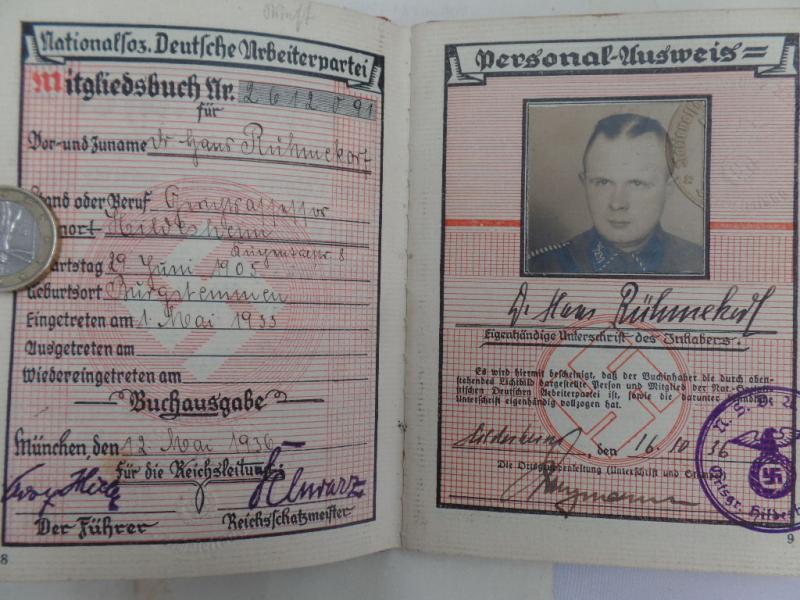 Nationalsoz. Deutsche Arbeiterpartei
Mitgliedsbuch Nr. 2612091
für
Vor- und Zuname Dr Hans Rühmekorf
Stand oder Beruf Gerichtsassessor
ort Hildesheim
8
burtstag 29 Juni 1905
Geburtsort Burgstemmen
Eingetreten am 1. Mai 1933
Ausgetreten am
Wiedereingetreten am
Buchausgabe
München, den 12 Mai 1936
für die Reichsleitung:
Adolf Hitler
Schwarz
Der Führer
Reichsschatzmeister
8
Personal-Ausweis
Dr Hans Rühmekorf
Eigenhändige Unterschrift des Inhabers.
Es wird hiermit bescheinigt, daß der Buchinhaber die durch oben-
stehendes Lichtbild dargestellte Person und Mitglied der Nat.-Sozialis-
tischen Deutschen Arbeiterpartei ist, sowie die darunter befindliche
Unterschrift eigenhändig vollzogen hat.
Hildesheim, den 16.10 36
Die Ortsgruppenleitung (Unterschrift und Stempel)
N.S.D.A.
Ortsgr. Hildesh
9